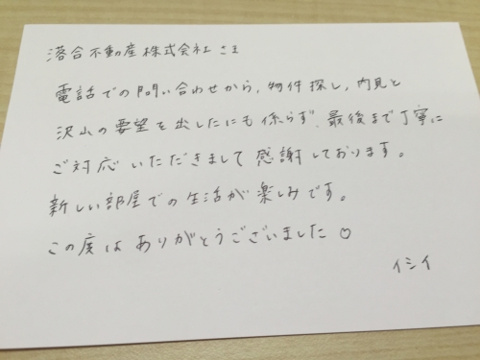 落合不動産株式会社 さま
電話での問い合わせから、物件探し、内見と
沢山の要望を出したにも係らず、最後まで丁寧に
ご対応いただきまして感謝しております。
新しい部屋での生活が楽しみです。
この度はありがとうございました♡
イシイ